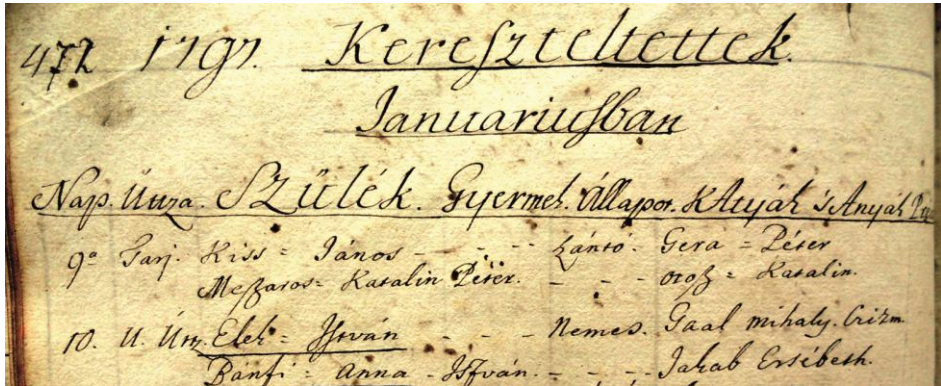 472 1797. Kereszteltettek.
Januariusban
Nap. Utza. Szülék. Gyermek. Állapot. K Atyák 's Anyák
9ª Tarj. Kiss = János - - - - Szántó. Gera = Péter
Meszaros = Katalin Péter. - - - orosz = Katalin.
10. U. Utz. Elek = István - - - Nemes. Gaal mihaly. Csizm.
Bánfi = Anna - István. - - - - Jakab Ersébeth.